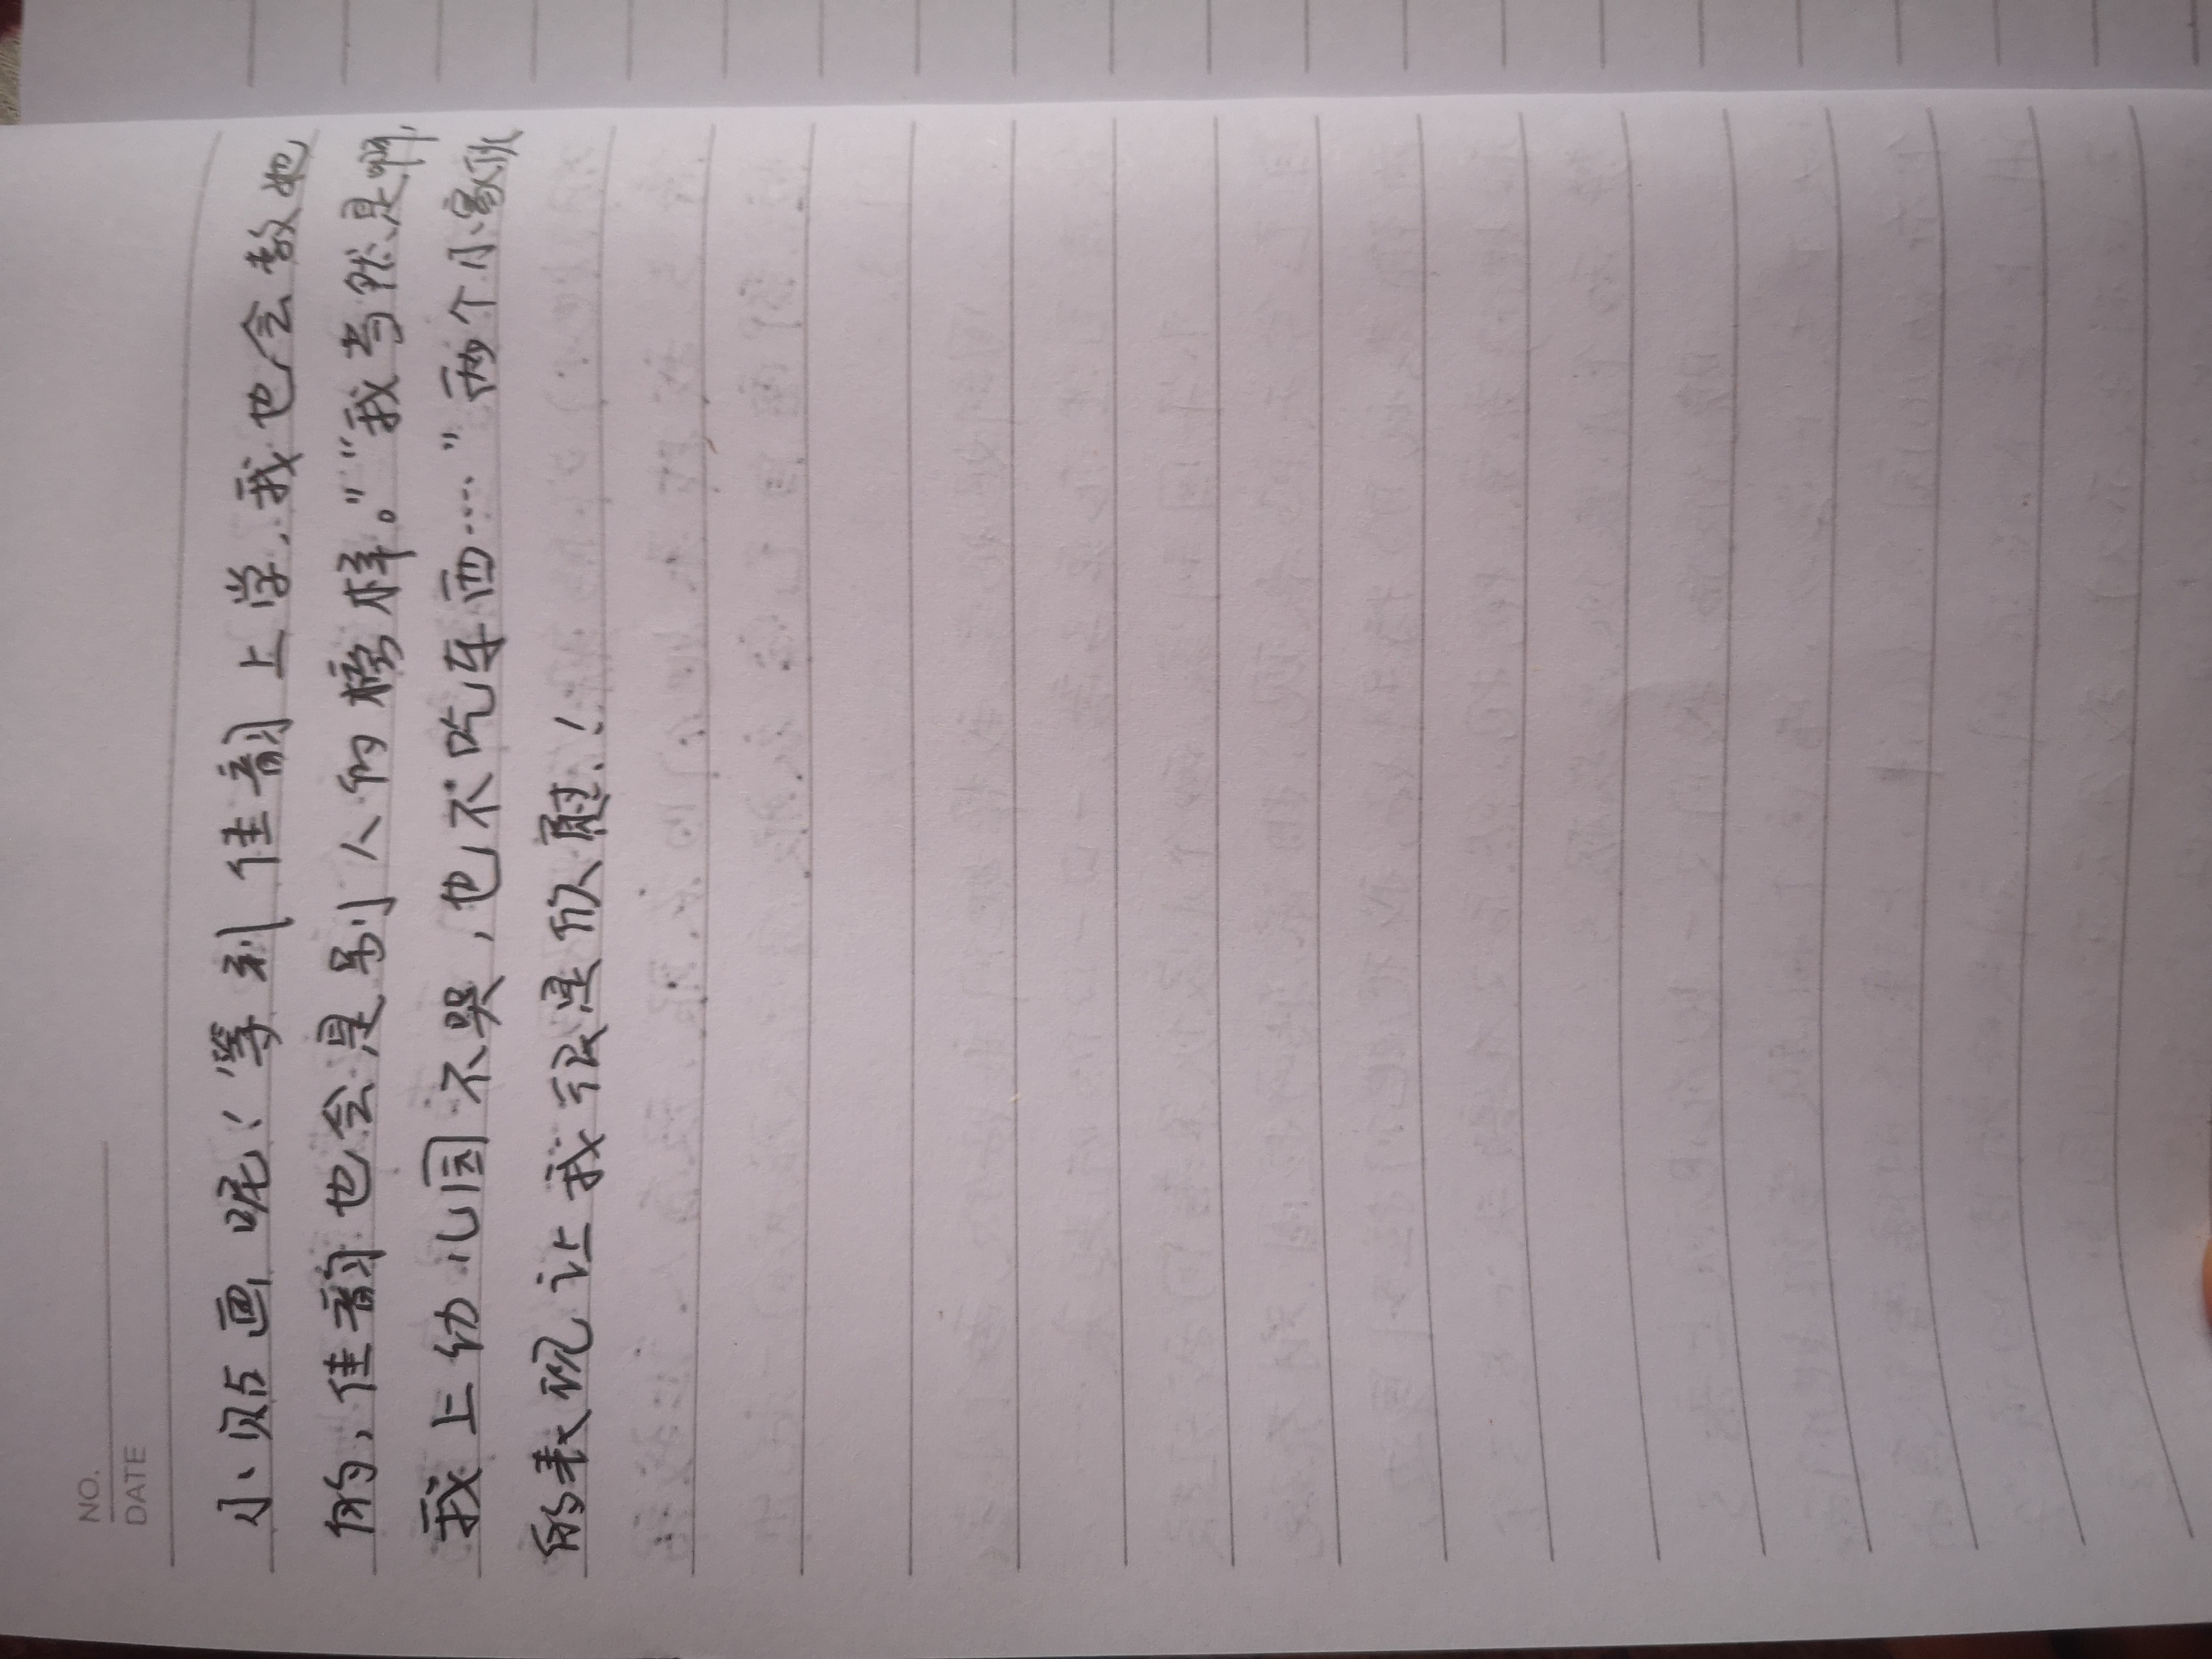 NO.
DATE
小贝占画呢！等到佳韵上学，我也会教她
的，佳韵也会是别人的榜样。”“我当然是啊，
我上幼儿园不哭，也不吃东西……”两个小家伙
的表现让我很是欣慰！